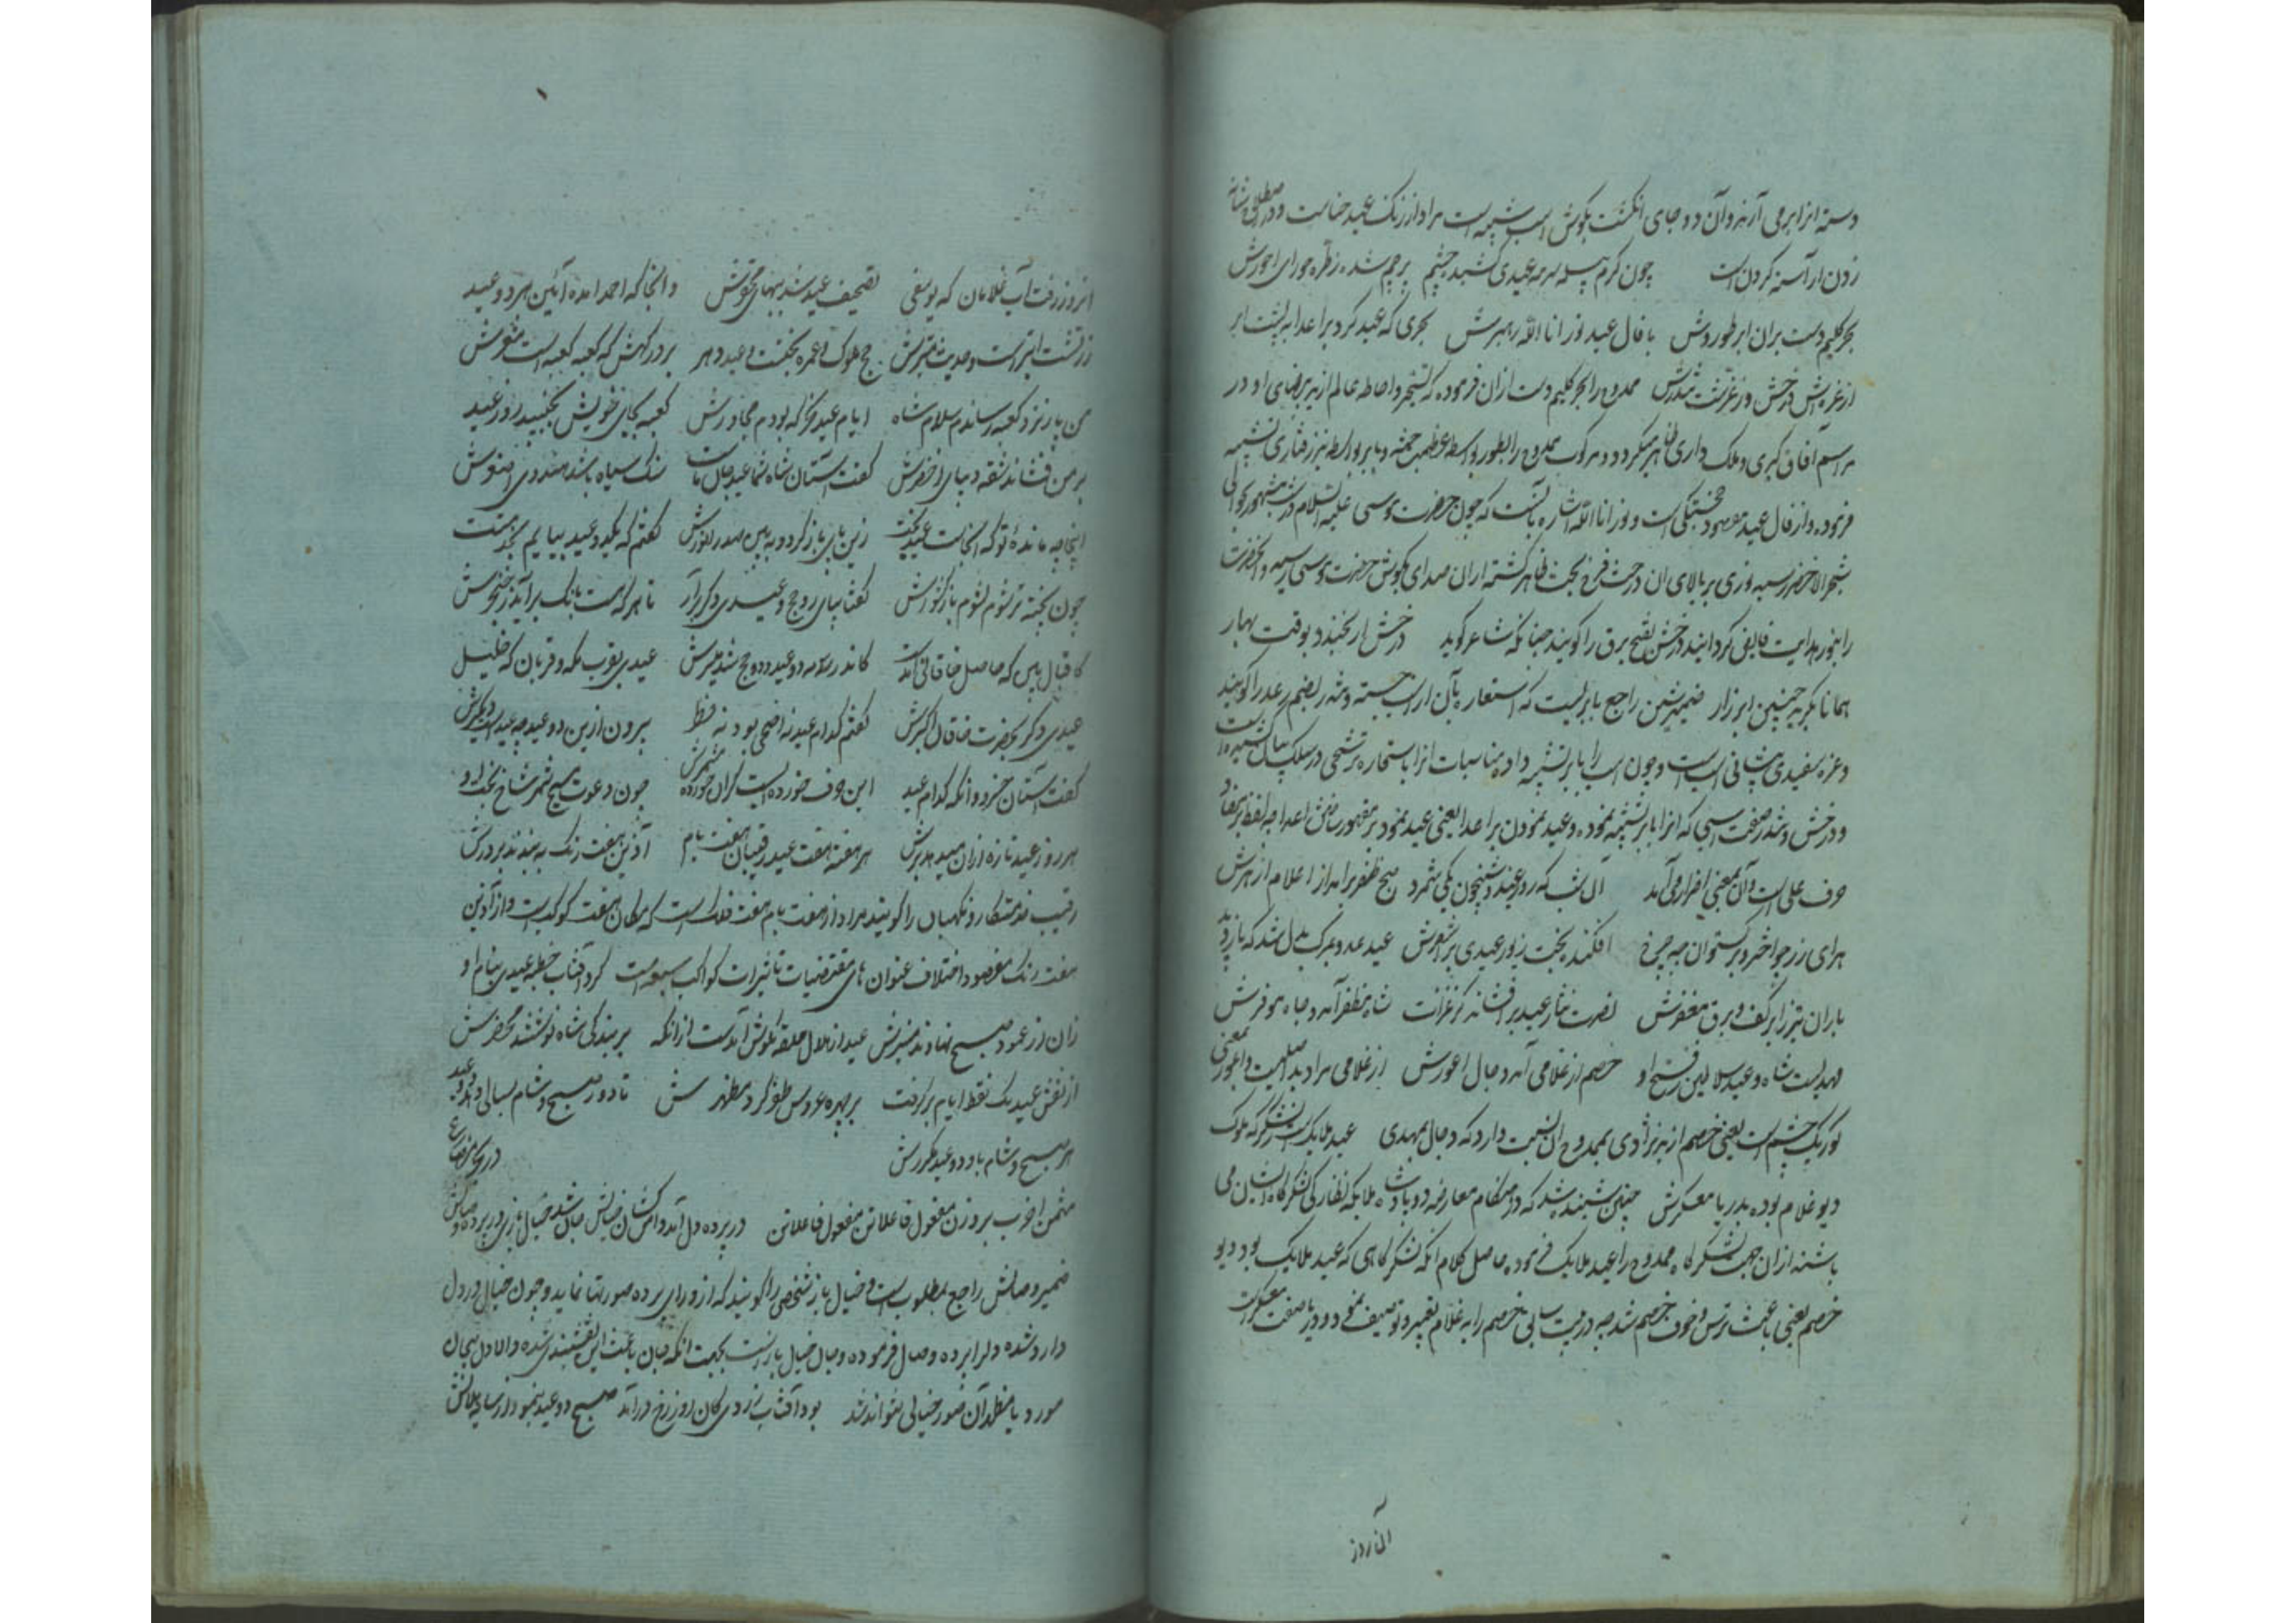 دسته از ابر می آرند و آن دو جای انگشت بگوش اسب شبیه است مراد از رنگ عید حناست و در
زدن از آسته کردن است چون کرم پیله سرمه عیدی کشید چشم پرچم شده ز طره حورای احورش
بحر کلیم دست بران ابر طور وش با فال عید نور انا الله رهبرش بحری که عید کرد بر اعدا به پشت ابر
از غره پیش درخش و ز غرش تندرش ممدوح را بحر کلیم دست ازان فرموده که تسخیر و احاطه عالم از ید بیضای او در
مراسم آفاق گیری و ملک داری ظاهر میگردد و مرکوب ممدوح را بطور بواسطه عظمت جثه و بابر بواسطه تیز رفتاری تشبیه
فرموده و از فال عید مقصود خجستگی است و نور انا الله اشاره بآنست که چون حضرت موسی علیه السلام در شب
شجر الاخضر رسید نوری بر بالای ان درخت فرخ بخت ظاهر گشته ازان صدای بگوش حضرت موسی رسید و آنحضرت
را بنور هدایت فایض گردانید درخش بفتح برق را گویند چنانکه شاعر گوید درخش ار نخندد بوقت بهار
همانا نگرید چنین ابر زار ضمیر شین راجع بابریست که استعاره بآن از اسب جسته و تندر بضم رعد را گویند
و غره سفیدی پیشانی اسب است و چون اسب را بابر تشبیه داده مناسبات انرا باستعاره ترشحی در سلک بیان
و درخش و تندر صفت اسبی که انرا بابر تشبیه نموده و عید نمودن بر اعدا یعنی عید نمود بر مقهور ساختن اعدا چه لفظ بر
حرف علی است و آن بمعنی اضرار می آید آن شب که روز عید و شبیخون یکی شمرد صبح ظفر برآمد از اعلام ازهرش
هرای زر چو اختر و برگستوان چو چرخ افکنده بخت زیور عیدی بر اشقرش عید عدو بمرگ بدل شد که باز
باران تیر ز ابر کف و برق مغفرش نصرت نثار عید برافشاند کز غزات شاه مظفر آمد و جاه موفرش
مهدیست شاه و عید سلاطین ز فتح او خصم از غلامی آمد دجال اعورش از غلامی مراد بد اصلیت و اعور بمعنی
کور یک چشم است یعنی خصم از بد نژادی بممدوح ان نسبت دارد که دجال بمهدی عید ملایک است ز لشکرگه ملوک
دیو غلام بوده بدر یا معسکرش چنین شنیده شد که در هنگام معارضه دو پادشاه ملایکه نظارگی لشکرگاه ایشان می
باشند ازان جهت لشکرگاه ممدوح را عید ملایک فرموده حاصل کلام انکه لشکرگاهی که عید ملایک بود دیو
خصم یعنی باعث ترس و خوف خصم شد چه در بیت سابق خصم را به غلام تعبیر و توصیف نمود و دریا صفت معسکرست
آن روز
آنروز رفت آب غلامان که یوسفی تصحیف عید شد ببهای محقرش و انجا که احمد امده آئین هر دو عید
زرتشت ابترست و حدیث مبترش حج ملوک و عمره بختست و عید دهر بر درگهش که کعبه کعبه است مشعرش
من پار نزد کعبه رساندم سلام شاه ایام عید نحر که بودم مجاورش کعبه بجای خویش بجنبید روز عید
بر من فشاند شقه دیبای اخضرش گفت آستان شاه شما عید جان ماست سنگ سیاه باشد هندوی اصغرش
اینجا چه مانده تو که آنجاست عید بخت زین جای باز گرد و ببین صدر انورش گفتم که یک دو عید بپایم بخدمتت
چون پخته تر شوم نشوم باز کشورش گفتا بپای زود حج و عیدی دگر برآر تا هر که هست بانگ برآید ز حنجرش
اقبال بین که حاصل خاقانی آمدست کاندر سه مه دو عید و دو حج شد میسرش عیدی بقرب مکه و قربان گه خلیل
عیدی دگر بحضرت خاقان اکبرش گفتم کدام عید نه اضحی بود نه فطر بیرون ازین دو عید چه عیدست دیگرش
گفت آستان خسرو وانگه کدام عید این حرف خرده ایست گران خورده مشمرش چون دعوت مسیح شمر شاخ بخت او
هر روز عید تازه ازان میدهد برش هر هفته هفت عید رقیبان هفت بام آذین هفت رنگ به بندند بر درش
رقیب خدمتکار و نگهبان را گویند مراد از هفت بام هفت فلک است که مکان هفت کوکب است و از آذین
هفت رنگ مقصود اختلاف عنوان های مقتضیات تاثیرات کواکب سبعه است کرد آفتاب خطبه عیدی بنام او
زان از عمود صبح نهادند منبرش عید از هلال حلقه بگوش آمدست ازانکه بر بندگی شاه نوشتند محضرش
از نقش عید یک نقط ایام برگرفت بر چهره عروس ظفر کرد مظهرش تا دور صبح و شام بسالی دهد دو عید
هر صبح و شام باد دو عید مکررش در بحر مضارع
مثمن اخرب بر وزن مفعول فاعلاتن مفعول فاعلاتن در پرده دل آمد دامن کشان خیالش جان شد خیال بازی در پرده وصالش
ضمیر وصالش راجع بمطلوب است و خیال باز شخصی را گویند که از ورای پرده صورتها نماید و چون خیال در دل
وارد شده دلرا پرده وصال فرموده و جان خیال بازست بجهت انکه جان باعث این نقشبندی شده و الا دل بیجان
مورد یا مظهر آن صور خیالی نتواند شد بود آفتاب زردی کان روز رخ درآمد صبح دو عید بنمود از سایه هلالش